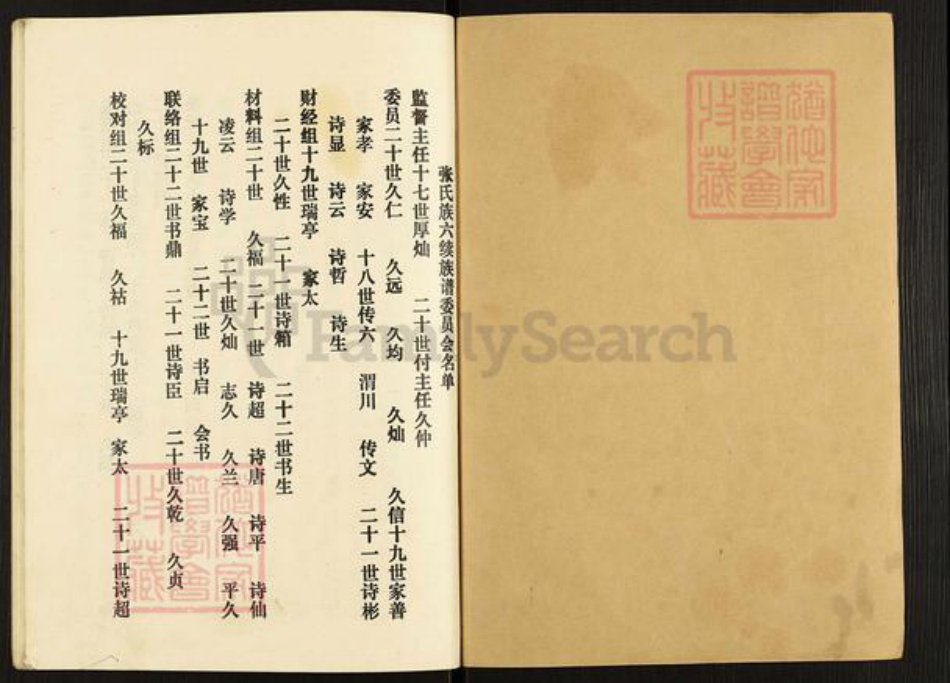 张氏族六续族谱委员会名单
监督主任十七世厚灿 二十世付主任久仲
委员二十世久仁 久远 久均 久灿 久信十九世家善
家孝 家安 十八世传六 渭川 传文 二十一世诗彬
诗显 诗云 诗哲 诗生
财经组十九世瑞亭 家太
二十世久性 二十一世诗箱 二十二世书生
材料组二十世 久福 二十一世 诗超 诗唐 诗平 诗仙
凌云 诗学 二十世久灿 志久 久兰 久强 平久
十九世 家宝 二十二世 书启 会书
联络组二十二世书鼎 二十一世诗臣 二十世久乾 久贞
久标
校对组二十世久福 久祜 十九世瑞亭 家太 二十一世诗超
FamilySearch
猶他家
譜學會
收藏
猶他家
譜學會
收藏